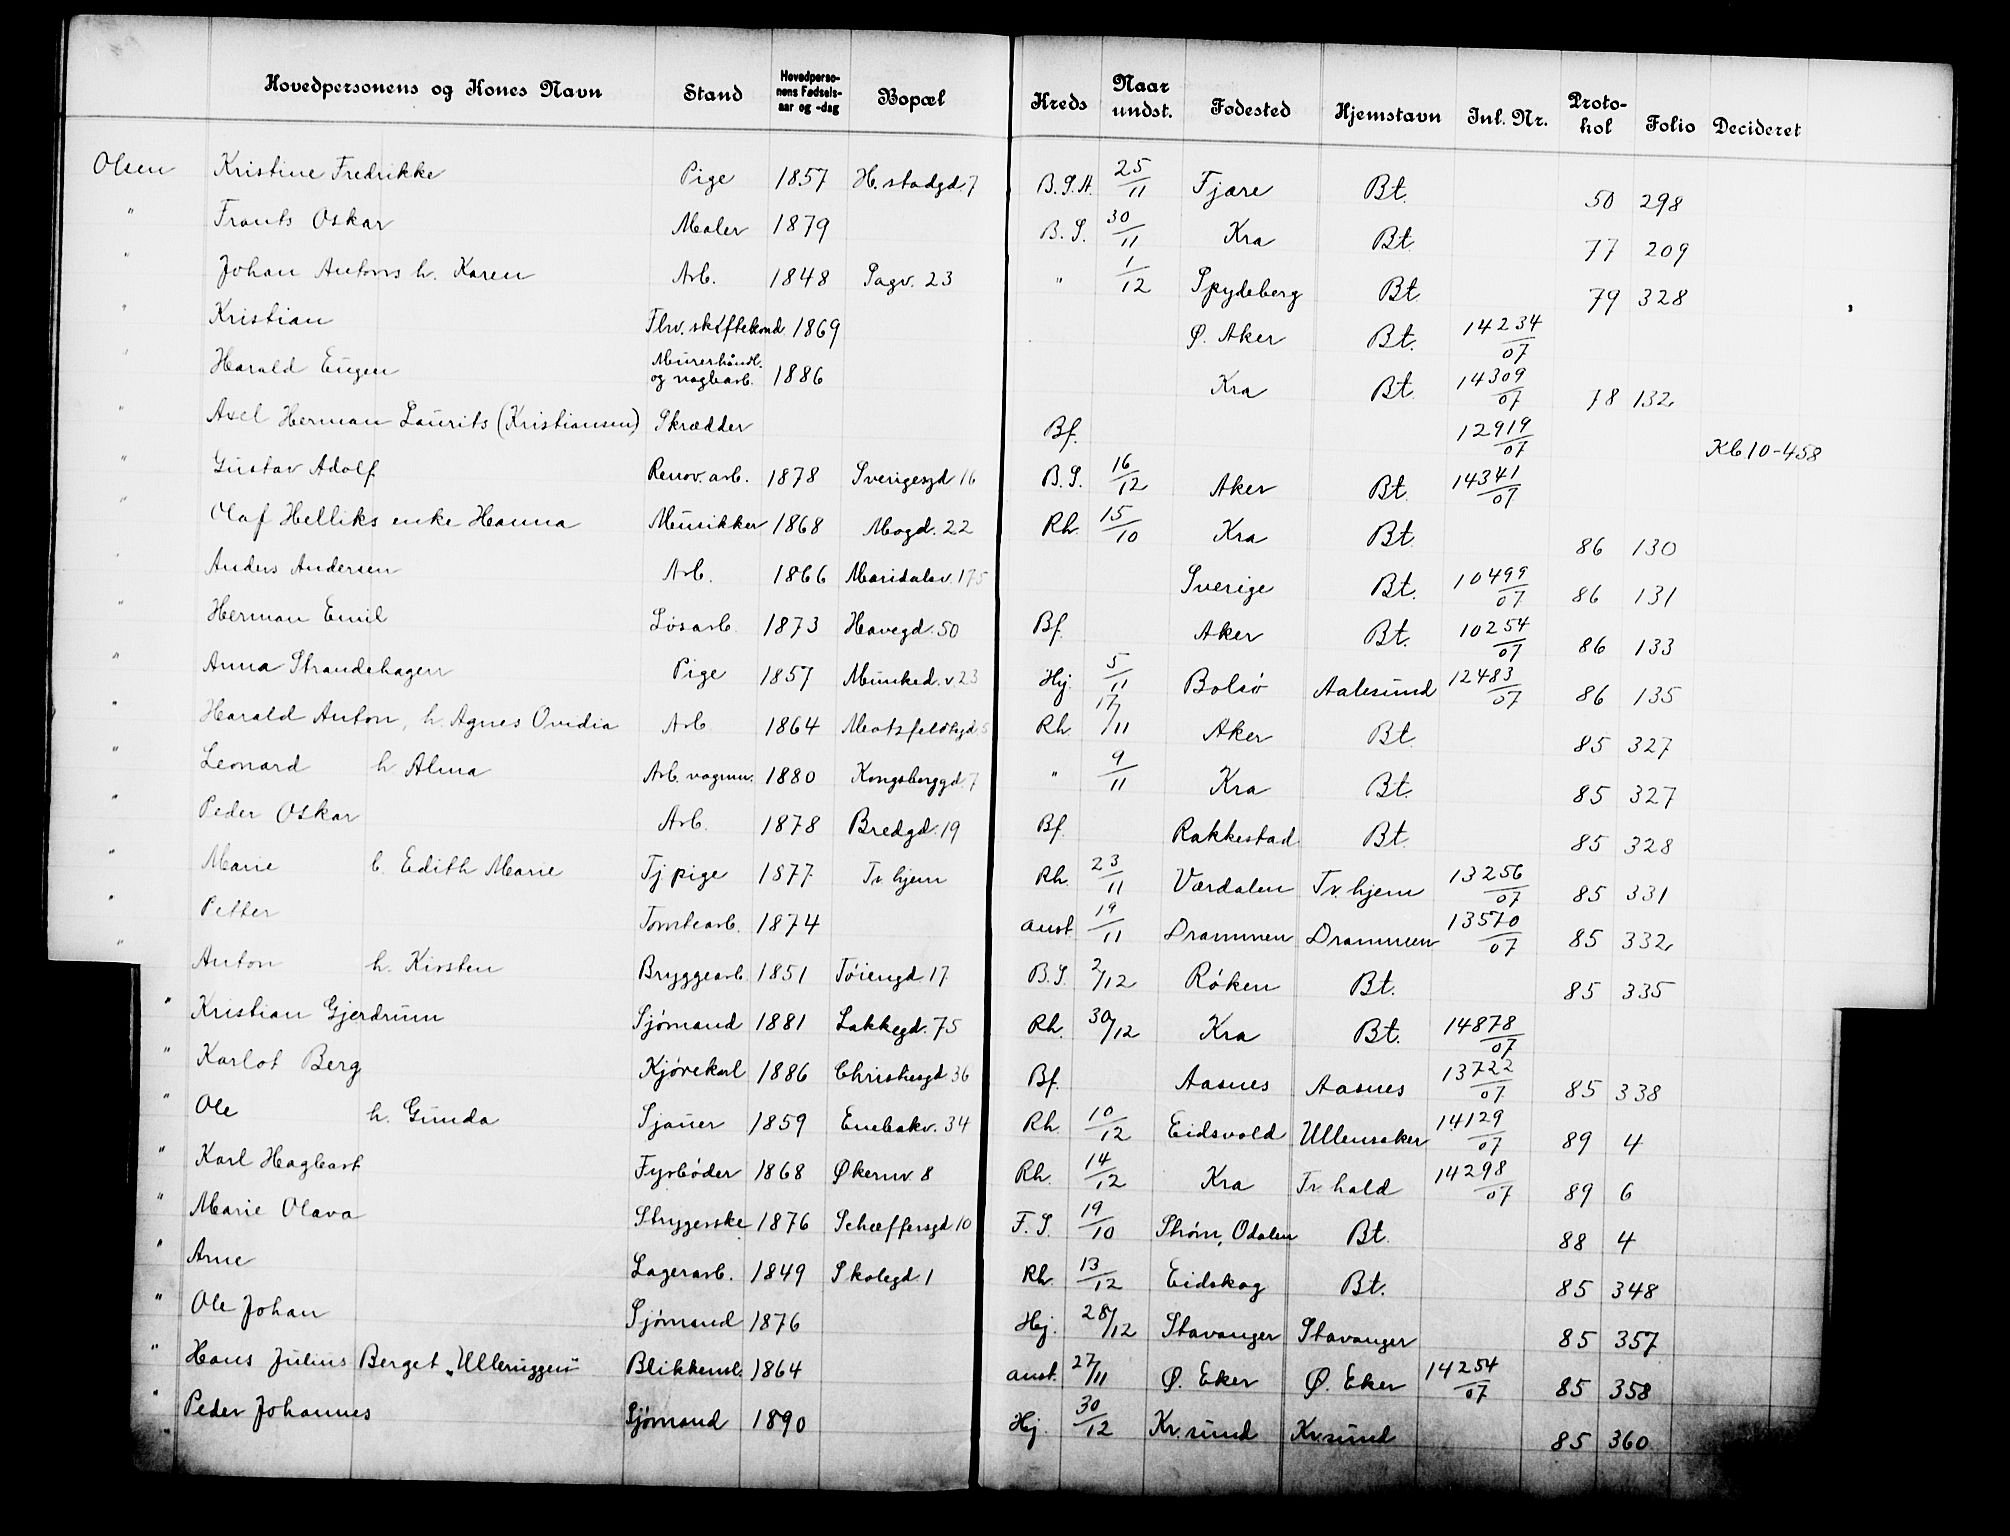 Hovedpersonens og Kones Navn Stand Hovedperso-nens Fødsels-aar og -dag Bopæl Kreds Naar undst. Fødested Hjemstavn Inl. Nr. Proto-kol Folio Decideret
Olsen Kristine Fredrikke Pige 1857 H.stadgd. 7 B.S.H. 25/11 Fjære Bt. 50 298
" Frants Oskar Maler 1879 B.S. 30/11 Kra Bt. 77 209
" Johan Antons h. Karen Arb. 1848 Sagv. 23 " 1/12 Spydeberg Bt. 79 328
" Kristian Fhv. skiftekond 1869 Ø. Aker Bt. 14234/07
" Harald Eugen Murerhåndl. og naglearb. 1886 Kra Bt. 14309/07 78 132
" Axel Herman Laurits (Kristiansen) Skrædder Bf. 12919/07 Kb 10-458
" Gustav Adolf Renov. arb. 1878 Sverigesgd 16 B.S. 16/12 Aker Bt. 14341/07
" Olaf Helliks enke Hanna Musikker 1868 Mogd. 22 Rh. 15/10 Kra Bt. 86 130
" Anders Andersen Arb. 1866 Maridalsv. 175 Sverige Bt. 10499/07 86 131
" Herman Emil Løsarb. 1873 Havegd. 50 Bf. Aker Bt. 10254/07 86 133
" Anna Strandehagen Pige 1857 Munked.v 23 Hj. 5/11 Bolsø Aalesund 12483/07 86 135
" Harald Anton, h. Agnes Ovidia Arb 1864 Motzfeldtsgd 5 Rh 17/11 Aker Bt. 85 327
" Leonard h Alma Arb. vognm. 1880 Kongsberggd. 7 " 9/11 Kra Bt. 85 327
" Peder Oskar Arb. 1878 Bredgd. 19 Bf. Rakkestad Bt. 85 328
" Marie b. Edith Marie Tj pige 1877 Tr. hjem Rh. 23/11 Værdalen Tr. hjem 13256/07 85 331
" Petter Tomtearb. 1874 anst. 19/11 Drammen Drammen 13570/07 85 332
" Anton h. Kirsten Bryggearb. 1851 Tøiengd. 17 B.S. 2/12 Røken Bt. 85 335
" Kristian Gjerdrum Sjømand 1881 Lakkegd. 75 Rh. 30/12 Kra Bt. 14878/07
" Karlot Berg Kjørekarl 1886 Christiesgd 36 Bf. Aasnes Aasnes 13722/07 85 338
" Ole h. Gunda Sjauer 1859 Enebakv. 34 Rh. 10/12 Eidsvold Ullensaker 14129/07 89 4
" Karl Hagbart Fyrbøder 1868 Økernv 8 Rh. 14/12 Kra Tr. hald 14298/07 89 6
" Marie Olava Strygerske 1876 Schæffersgd 10 F.S. 19/10 Strøm, Odalen Bt. 88 4
" Arne Lagerarb. 1849 Skolegd. 1 Rh. 13/12 Eidskog Bt. 85 348
" Ole Johan Sjømand 1876 Hj. 28/12 Stavanger Stavanger 85 357
" Hans Julius Berget „Ulleruggen" Blikkensl. 1864 anst. 27/11 Ø. Eker Ø. Eker 14254/07 85 358
" Peder Johannes Sjømand 1890 Hj. 30/12 Kr.sund Kr.sund 85 360
"